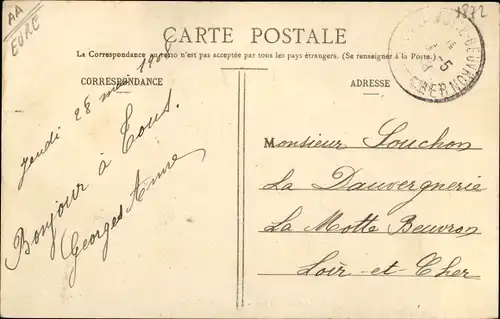 AA
EURE
1872
CARTE POSTALE
La Correspondance au recto n'est pas acceptée par tous les pays étrangers. (Se renseigner à la Poste.)
CORRESPONDANCE
ADRESSE
Jeudi 28 mai 1908
Bonjour à Tous.
Georges Anne
Monsieur Souchon
La Dauvergnerie
La Motte Beuvron
Loir-et-Cher